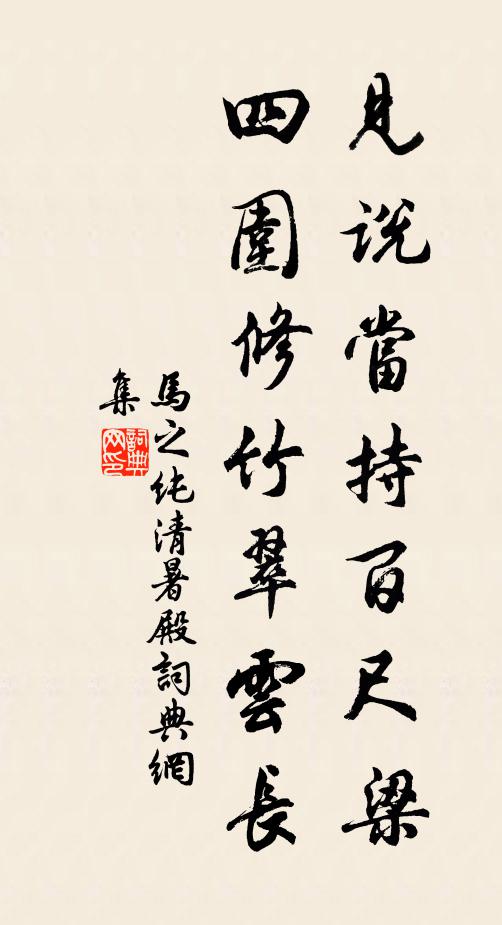 見說當持百尺梁
四圍修竹翠雲長
馬之純清暑殿詞典網
集
詞典
网印